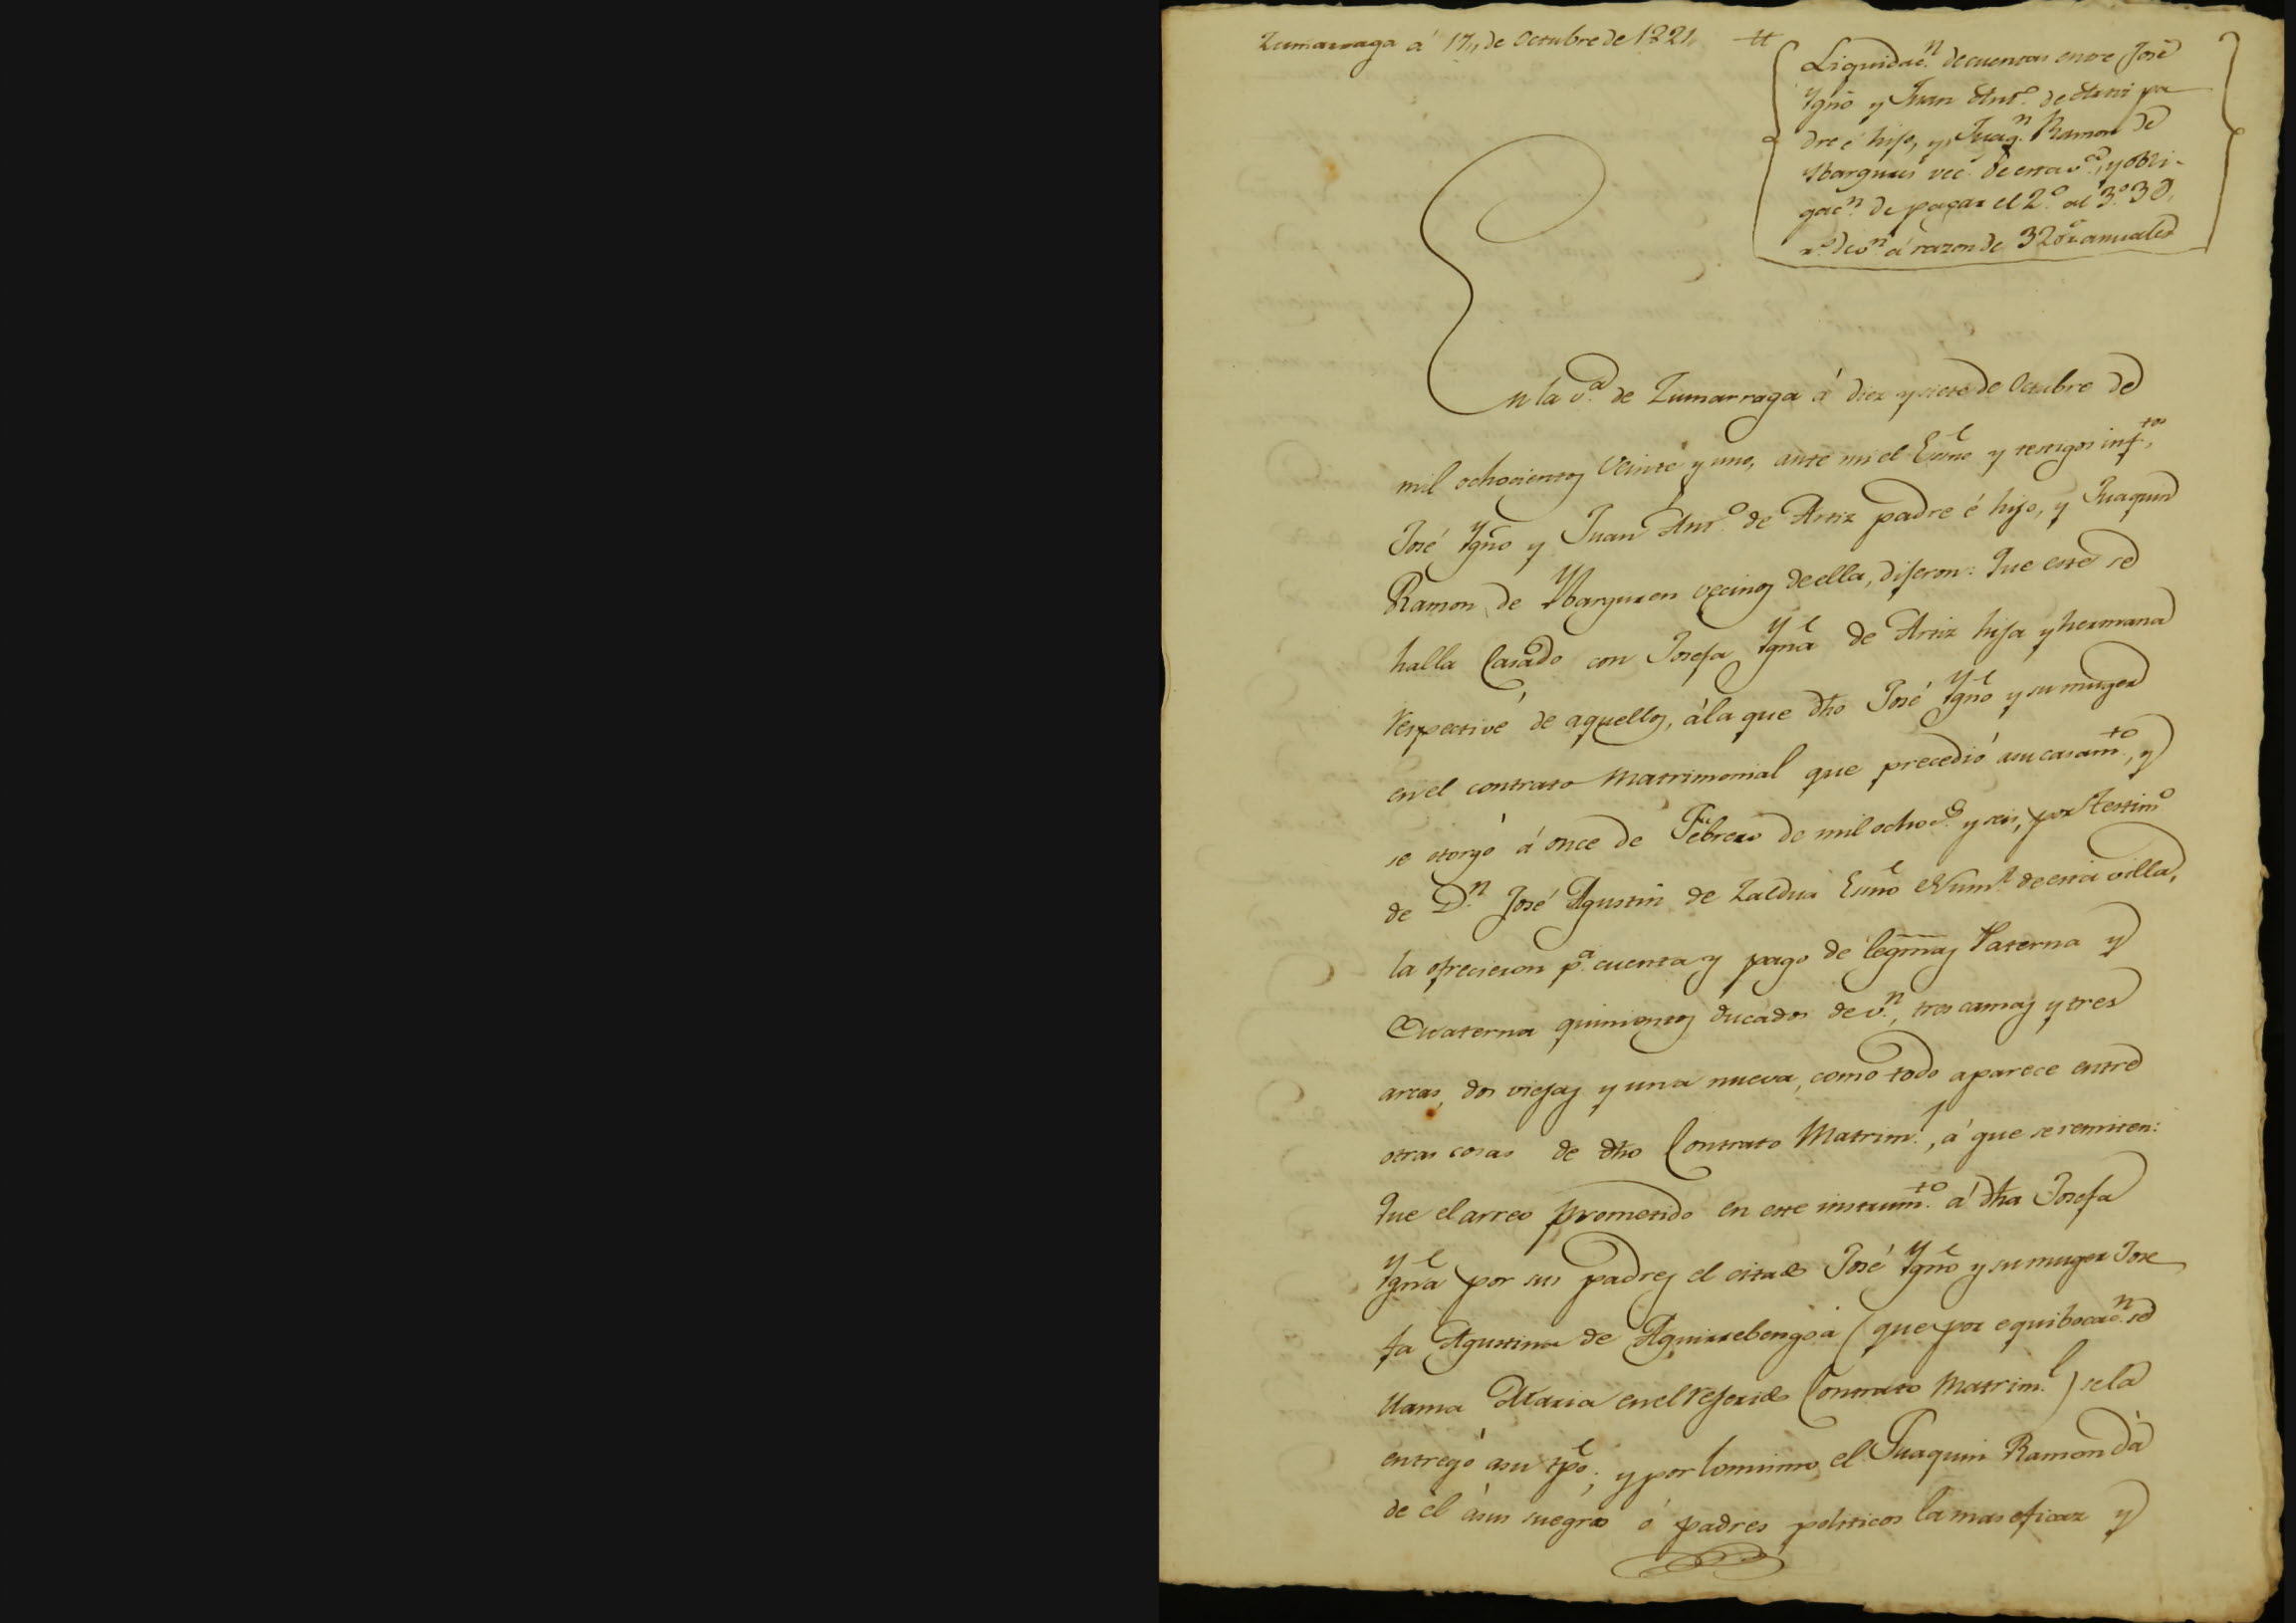 Zumarraga á 17,, de Octubre de 1821.
Liquidac.n de cuentas entre José
Ygn̄o y Juan Ant.o de Artiz pa
dre é hijo, y Juaq.n Ramon de
Ybarguren vec.s de esta v.a, y obli-
gac.n de pagar el 2.o al 3.o 3@,
r.s de v.n á razon de 320 r.s anuales
En la v.a de Zumarraga á diez y siete de Octubre de
mil ochocientos veinte y uno, ante mi el Esc̄no y testigos inf.tos,
José Ygn̄o y Juan Ant.o de Artiz padre é hijo, y Juaquin
Ramon de Ybarguren vecinos de ella, dijeron: Que este se
halla Casado con Josefa Ygn̄a de Artiz hija y hermana
respectivé de aquellos, á la que dh̄o José Ygn̄o y su muger
en el contrato Matrimonial que precedió a su casam.to, y
se otorgó á once de Febrero de mil ochoc.s y seis, por testim.o
de D.n José Agustin de Zaldua Esc̄no Num.l de esta villa,
la ofrecieron p.a cuenta y pago de legm̄as Paterna y
Materna quinientos ducados de v.n, tres camas y tres
arcas, dos viejas y una nueva, como todo aparece entre
otras cosas de dh̄o Contrato Matrim.l, á que se remiten:
Que el arreo prometido en este instrum.to á dh̄a Josefa
Ygn̄a por sus padres el citado José Ygn̄o y su muger Jose
fa Agustina de Aguirrebengoa (que por equibocac.n se
llama Maria en el referido Contrato Matrim.l) se la
entregó a su tp̄o; y por lo mismo el Juaquin Ramon dá
de él á sus suegros ó padres politicos la mas eficaz y